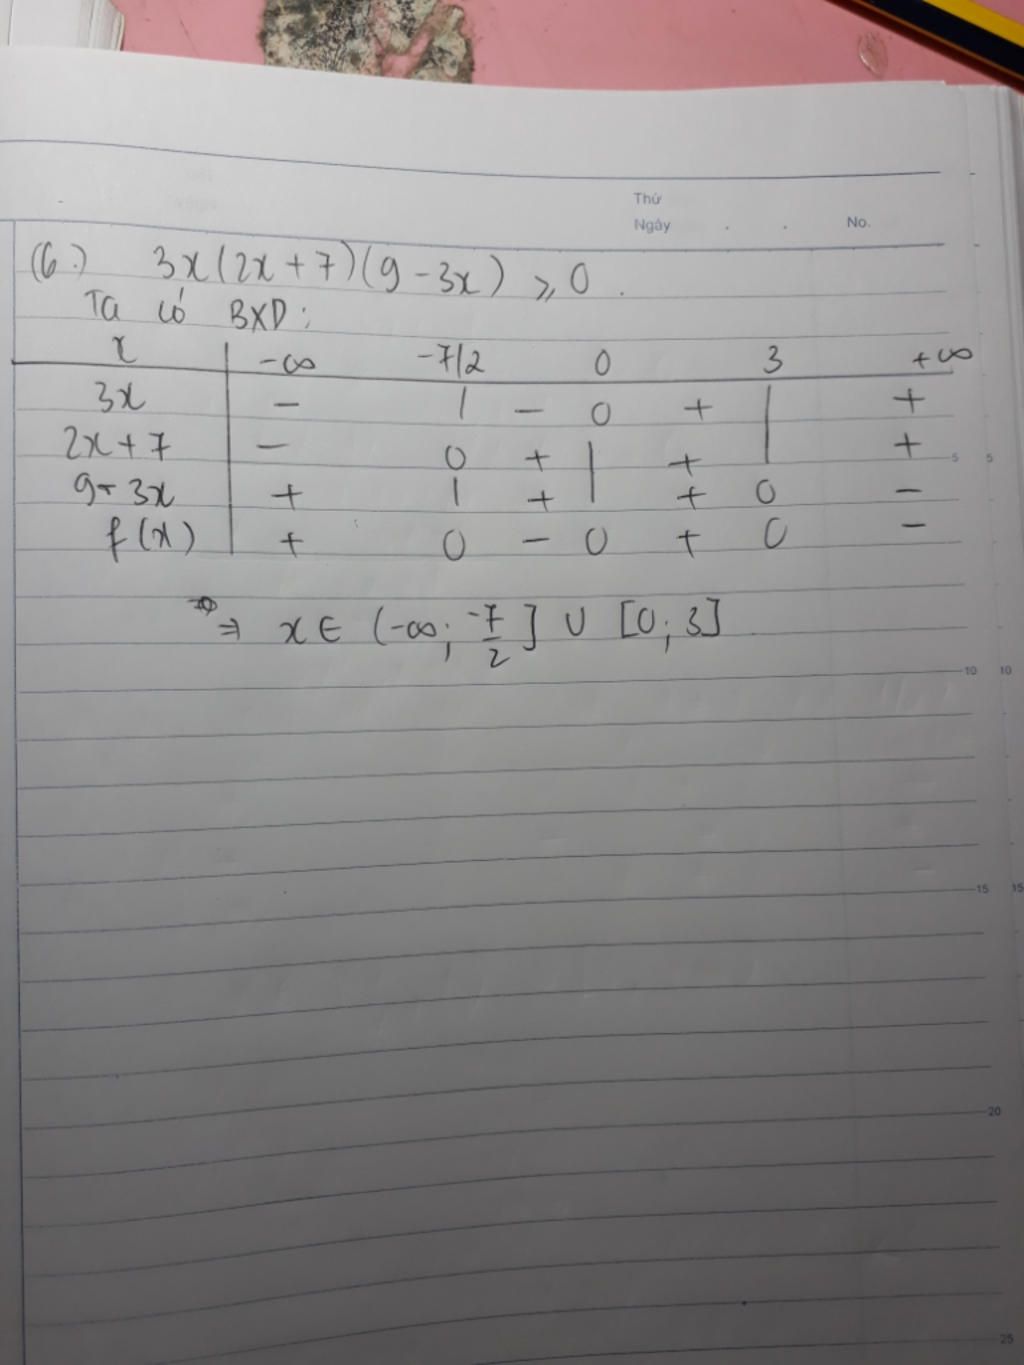 Thứ
Ngày . . No.
(6.) 3x(2x+7)(9-3x) ⩾ 0.
Ta có BXD:
x -∞ -7/2 0 3 +∞
3x - | - 0 + | +
2x+7 - 0 + | + | +
9-3x + | + | + 0 -
f(x) + 0 - 0 + 0 -
⇒ x ∈ (-∞; -7/2] ∪ [0; 3]
5 5
10 10
15 15
20
25